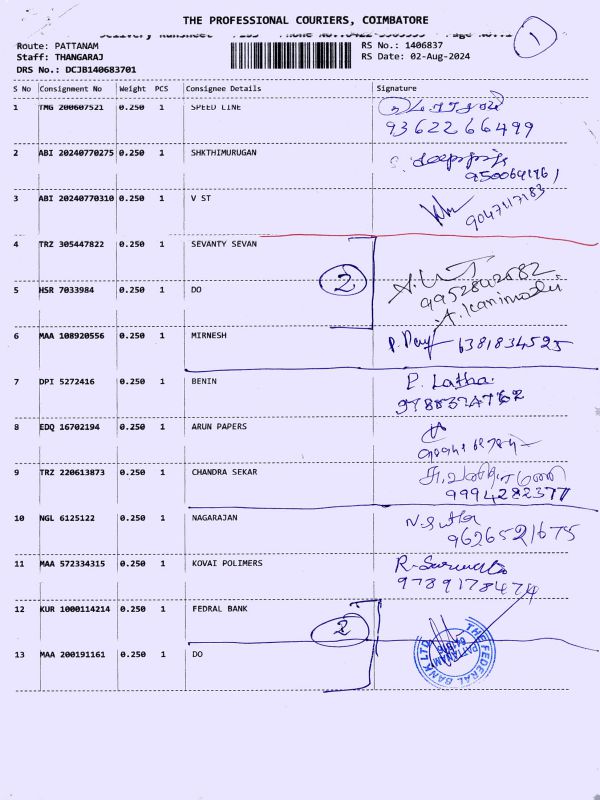 THE PROFESSIONAL COURIERS, COIMBATORE
Route: PATTANAM
Staff: THANGARAJ
DRS No.: DCJB140683701
RS No.: 1406837
RS Date: 02-Aug-2024
1
S No Consignment No Weight PCS Consignee Details Signature
1 TMG 200607521 0.250 1 SPEED LINE
9362266499
2 ABI 20240770275 0.250 1 SHKTHIMURUGAN
3 ABI 20240770310 0.250 1 V ST
9047117183
4 TRZ 305447822 0.250 1 SEVANTY SEVAN
2
5 HSR 7033984 0.250 1 DO
A. Kanimozhi
6 MAA 108920556 0.250 1 MIRNESH
6381834525
7 DPI 5272416 0.250 1 BENIN P. Latha
8 EDQ 16702194 0.250 1 ARUN PAPERS
9 TRZ 220613873 0.250 1 CHANDRA SEKAR
9994282377
10 NGL 6125122 0.250 1 NAGARAJAN
9626521675
11 MAA 572334315 0.250 1 KOVAI POLIMERS
9789178474
12 KUR 1000114214 0.250 1 FEDRAL BANK
2
THE FEDERAL BANK LTD
PATTANAM
13 MAA 200191161 0.250 1 DO